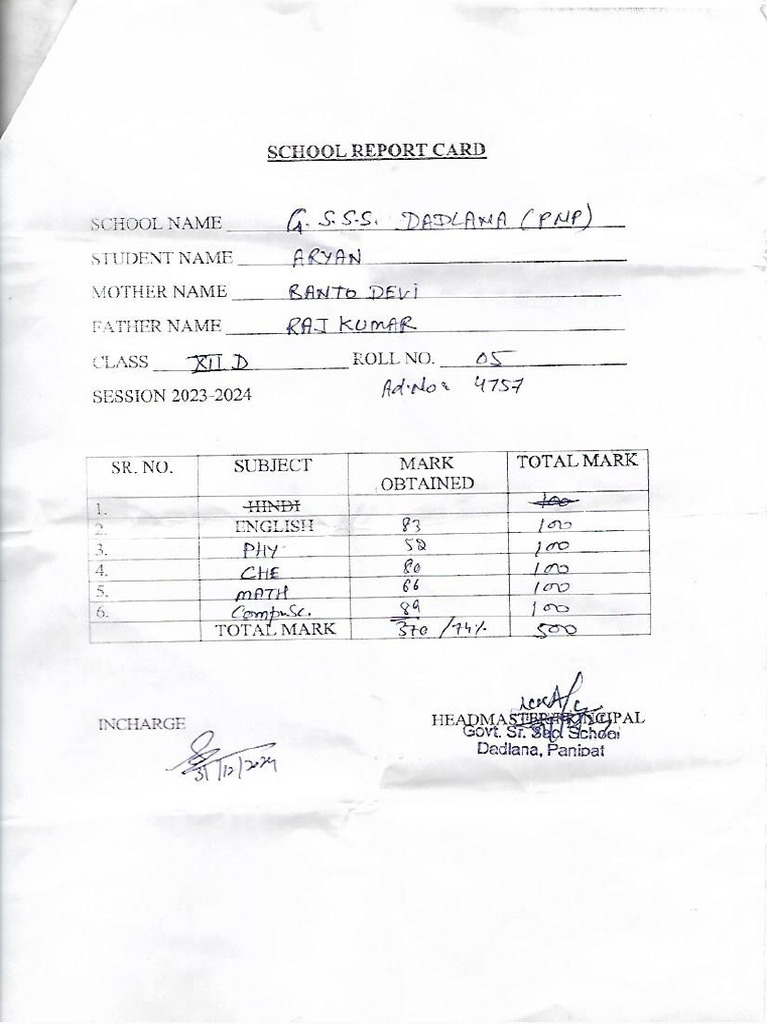 SCHOOL REPORT CARD
SCHOOL NAME G. S.S.S. DADLANA (PNP)
STUDENT NAME ARYAN
MOTHER NAME BANTO DEVI
FATHER NAME RAJ KUMAR
CLASS XII D ROLL NO. 05
SESSION 2023-2024 Ad.No: 4757
SR. NO. SUBJECT MARK OBTAINED TOTAL MARK
1. HINDI 100
2. ENGLISH 83 100
3. PHY 52 100
4. CHE 80 100
5. MATH 66 100
6. Comp.Sc. 89 100
TOTAL MARK 370 /74% 500
INCHARGE HEADMASTER/PRINCIPAL
Govt. Sr. Sec. School
Dadlana, Panipat
31/12/2024